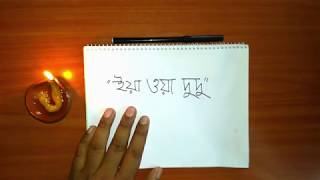 "ইয়া ওয়া দুদু"